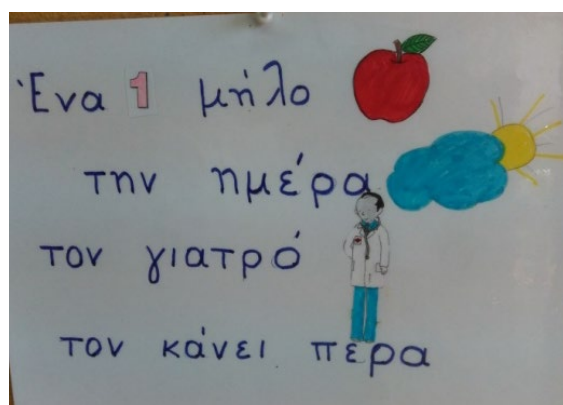 Ένα 1 μήλο
την ημέρα
τον γιατρό
τον κάνει πέρα